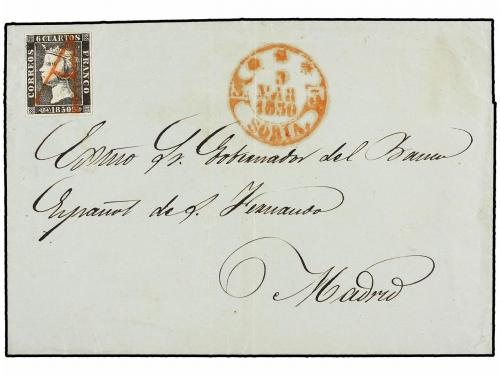 6 CUARTOS
CORREOS
FRANCO
1850
5
MAR
1850
SORIA.
Exmo Sr. Gobernador del Banco
Español de S. Fernando
Madrid